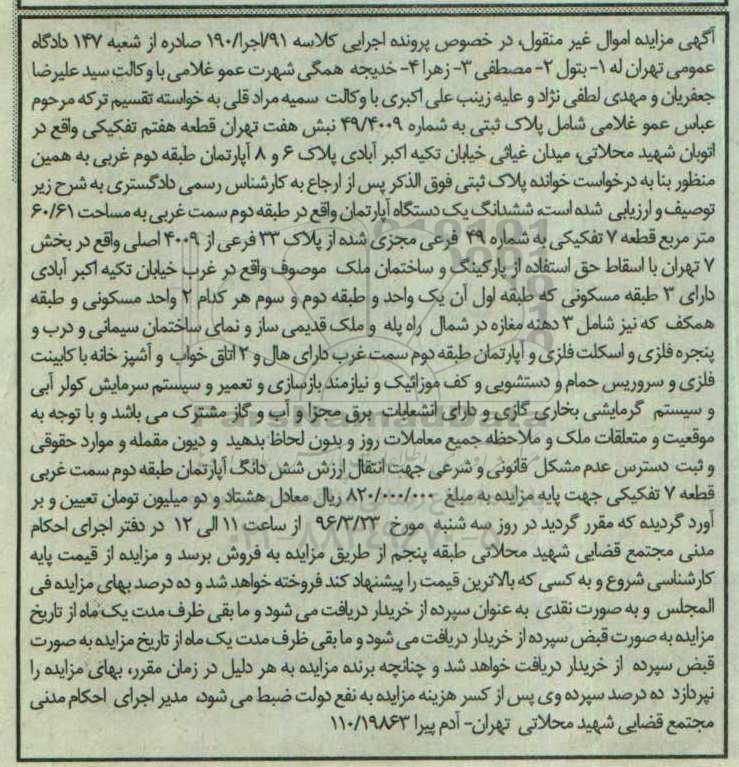 آگهی مزایده اموال غیر منقول، در خصوص پرونده اجرایی کلاسه ۹۱/اجرا/۱۹۰ صادره از شعبه ۱۴۷ دادگاه
عمومی تهران له ۱- بتول ۲- مصطفی ۳- زهرا ۴- خدیجه همگی شهرت عمو غلامی با وکالت سید علیرضا
جعفریان و مهدی لطفی نژاد و علیه زینب علی اکبری با وکالت سمیه مراد قلی به خواسته تقسیم ترکه مرحوم
عباس عمو غلامی شامل پلاک ثبتی به شماره ۴۹/۴۰۰۹ نبش هفت تهران قطعه هفتم تفکیکی واقع در
اتوبان شهید محلاتی، میدان غیاثی خیابان تکیه اکبر آبادی پلاک ۶ و ۸ آپارتمان طبقه دوم غربی به همین
منظور بنا به درخواست خوانده پلاک ثبتی فوق الذکر پس از ارجاع به کارشناس رسمی دادگستری به شرح زیر
توصیف و ارزیابی شده است، ششدانگ یک دستگاه آپارتمان واقع در طبقه دوم سمت غربی به مساحت ۶۰/۶۱
متر مربع قطعه ۷ تفکیکی به شماره ۴۹ فرعی مجزی شده از پلاک ۳۳ فرعی از ۴۰۰۹ اصلی واقع در بخش
۷ تهران با اسقاط حق استفاده از پارکینگ و ساختمان ملک موصوف واقع در غرب خیابان تکیه اکبر آبادی
دارای ۳ طبقه مسکونی که طبقه اول آن یک واحد و طبقه دوم و سوم هر کدام ۲ واحد مسکونی و طبقه
همکف که نیز شامل ۳ دهنه مغازه در شمال راه پله و ملک قدیمی ساز و نمای ساختمان سیمانی و درب و
پنجره فلزی و اسکلت فلزی و آپارتمان طبقه دوم سمت غرب دارای هال و ۲ اتاق خواب و آشپز خانه با کابینت
فلزی و سرویس حمام و دستشویی و کف موزائیک و نیازمند بازسازی و تعمیر و سیستم سرمایش کولر آبی
و سیستم گرمایشی بخاری گازی و دارای انشعابات برق مجزا و آب و گاز مشترک می باشد و با توجه به
موقعیت و متعلقات ملک و ملاحظه جمیع معاملات روز و بدون لحاظ بدهید و دیون مقمله و موارد حقوقی
و ثبت دسترس عدم مشکل قانونی و شرعی جهت انتقال ارزش شش دانگ آپارتمان طبقه دوم سمت غربی
قطعه ۷ تفکیکی جهت پایه مزایده به مبلغ ۸۲۰/۰۰۰/۰۰۰ ریال معادل هشتاد و دو میلیون تومان تعیین و بر
آورد گردیده که مقرر گردید در روز سه شنبه مورخ ۹۶/۳/۲۳ از ساعت ۱۱ الی ۱۲ در دفتر اجرای احکام
مدنی مجتمع قضایی شهید محلاتی طبقه پنجم از طریق مزایده به فروش برسد و مزایده از قیمت پایه
کارشناسی شروع و به کسی که بالاترین قیمت را پیشنهاد کند فروخته خواهد شد و ده درصد بهای مزایده فی
المجلس و به صورت نقدی به عنوان سپرده از خریدار دریافت می شود و ما بقی ظرف مدت یک ماه از تاریخ
مزایده به صورت قبض سپرده از خریدار دریافت می شود و ما بقی ظرف مدت یک ماه از تاریخ مزایده به صورت
قبض سپرده از خریدار دریافت خواهد شد و چنانچه برنده مزایده به هر دلیل در زمان مقرر، بهای مزایده را
نپردازد ده درصد سپرده وی پس از کسر هزینه مزایده به نفع دولت ضبط می شود، مدیر اجرای احکام مدنی
مجتمع قضایی شهید محلاتی تهران- آدم پیرا ۱۱۰/۱۹۸۶۳